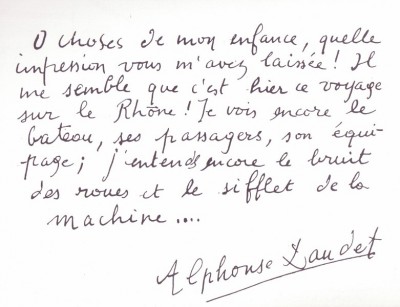 O choses de mon enfance, quelle
impression vous m'avez laissée! Il
me semble que c'est hier ce voyage
sur le Rhône! Je vois encore le
bateau, ses passagers, son équi-
page; j'entends encore le bruit
des roues et le sifflet de la
machine....
Alphonse Daudet